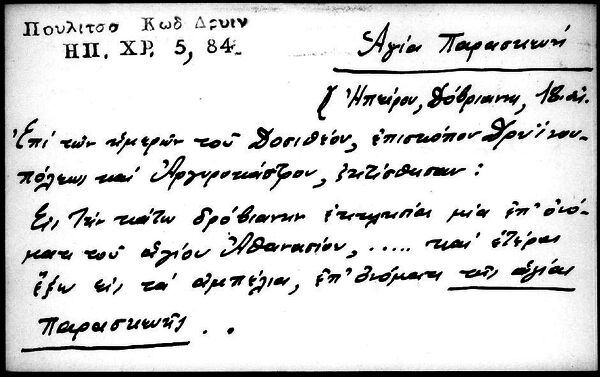 Πουλιτσα Κωδ Δρυιν
ΗΠ. ΧΡ. 5, 84
Ἁγία Παρασκευή
Ἠπείρου, Δόβριανη, 18 αἰ.
Ἐπί τῶν ἡμερῶν τοῦ Δοσιθέου, ἐπισκόπου Δρυϊνου-
πόλεως καί Ἀργυροκάστρου, ἐκτίσθησαν:
Εἰς τήν κάτω δρόβιανην ἐκκλησίαι μία ἐπ' ὀνό-
ματι τοῦ ἁγίου Ἀθανασίου, ..... καί ἑτέραι
ἔξω εἰς τά ἀμπέλια, ἐπ' ὀνόματι τῆς ἁγίας
Παρασκευῆς ..